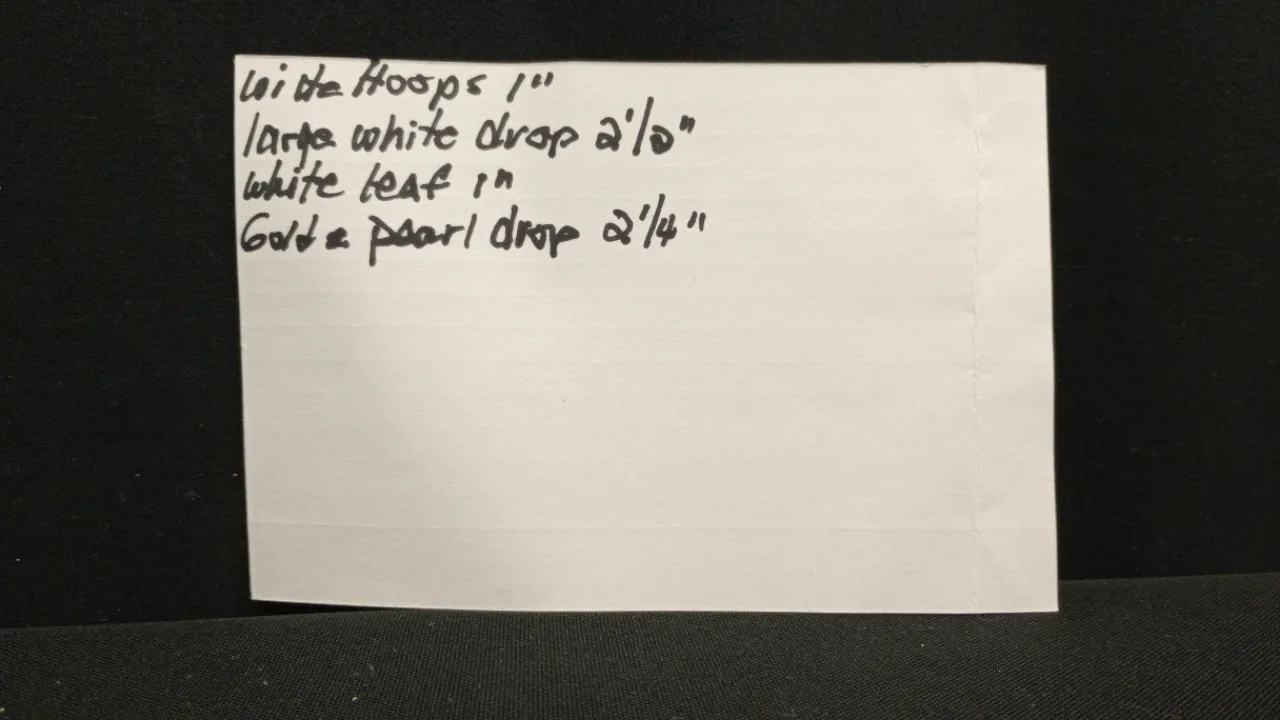 white Hoops 1"
large white drop 2 1/2"
white leaf 1"
Gold & pearl drop 2 1/4"